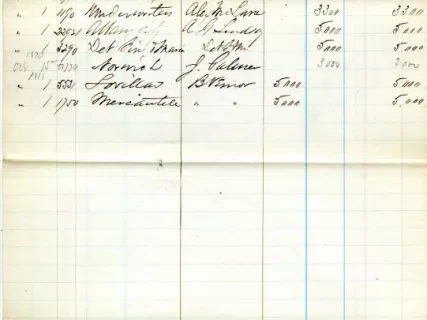 " 1 1190 Underwriters Alex McLane 3300 3300
" 1 22521 Albany A G Lindsay 5000 5000
" 1 5290 Det Fire & Marine 5000 5000
Norwich J. Palmer 3000 3000
" 1 5551 Lorillard B Vernor 5000 5000
" 1 1750 Mercantile " " 5000 5,000